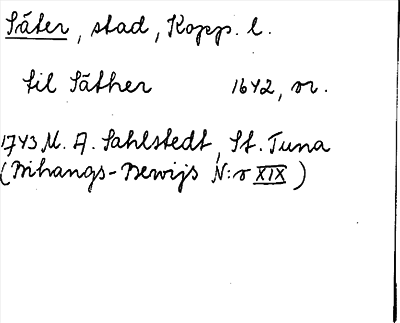 Säter, stad, Kopp. l.
til Säther 1642, or.
1743 M. A. Sahlstedt, St. Tuna
(Bihangs-Bewijs N:o XIX)